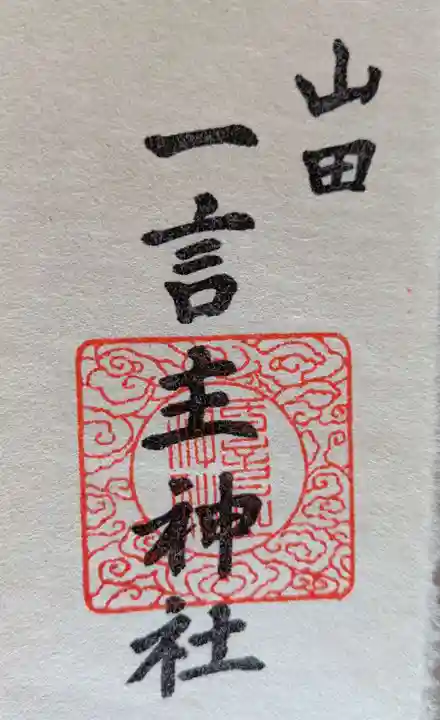 山田
一言主神社